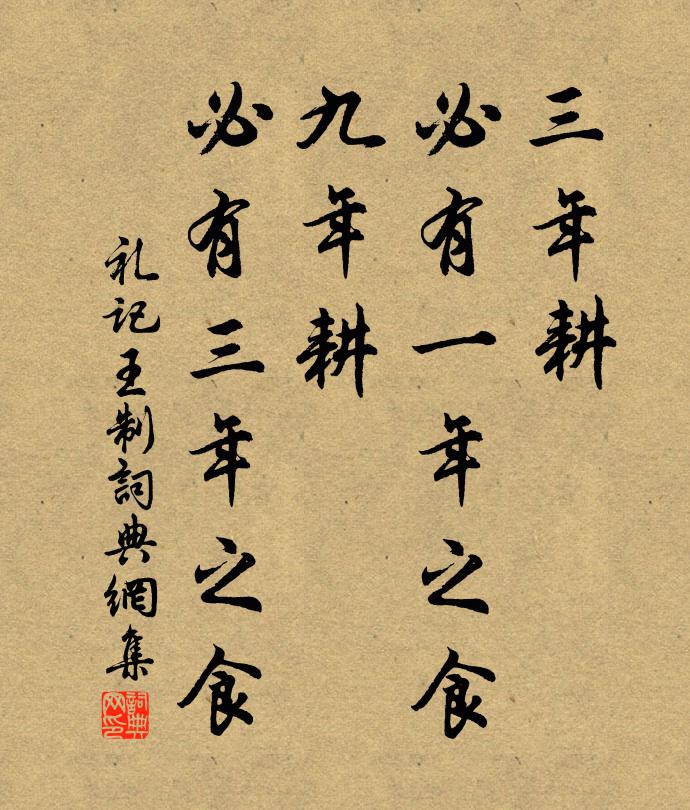 三年耕
必有一年之食
九年耕
必有三年之食
礼记王制詞典網集
詞典网印